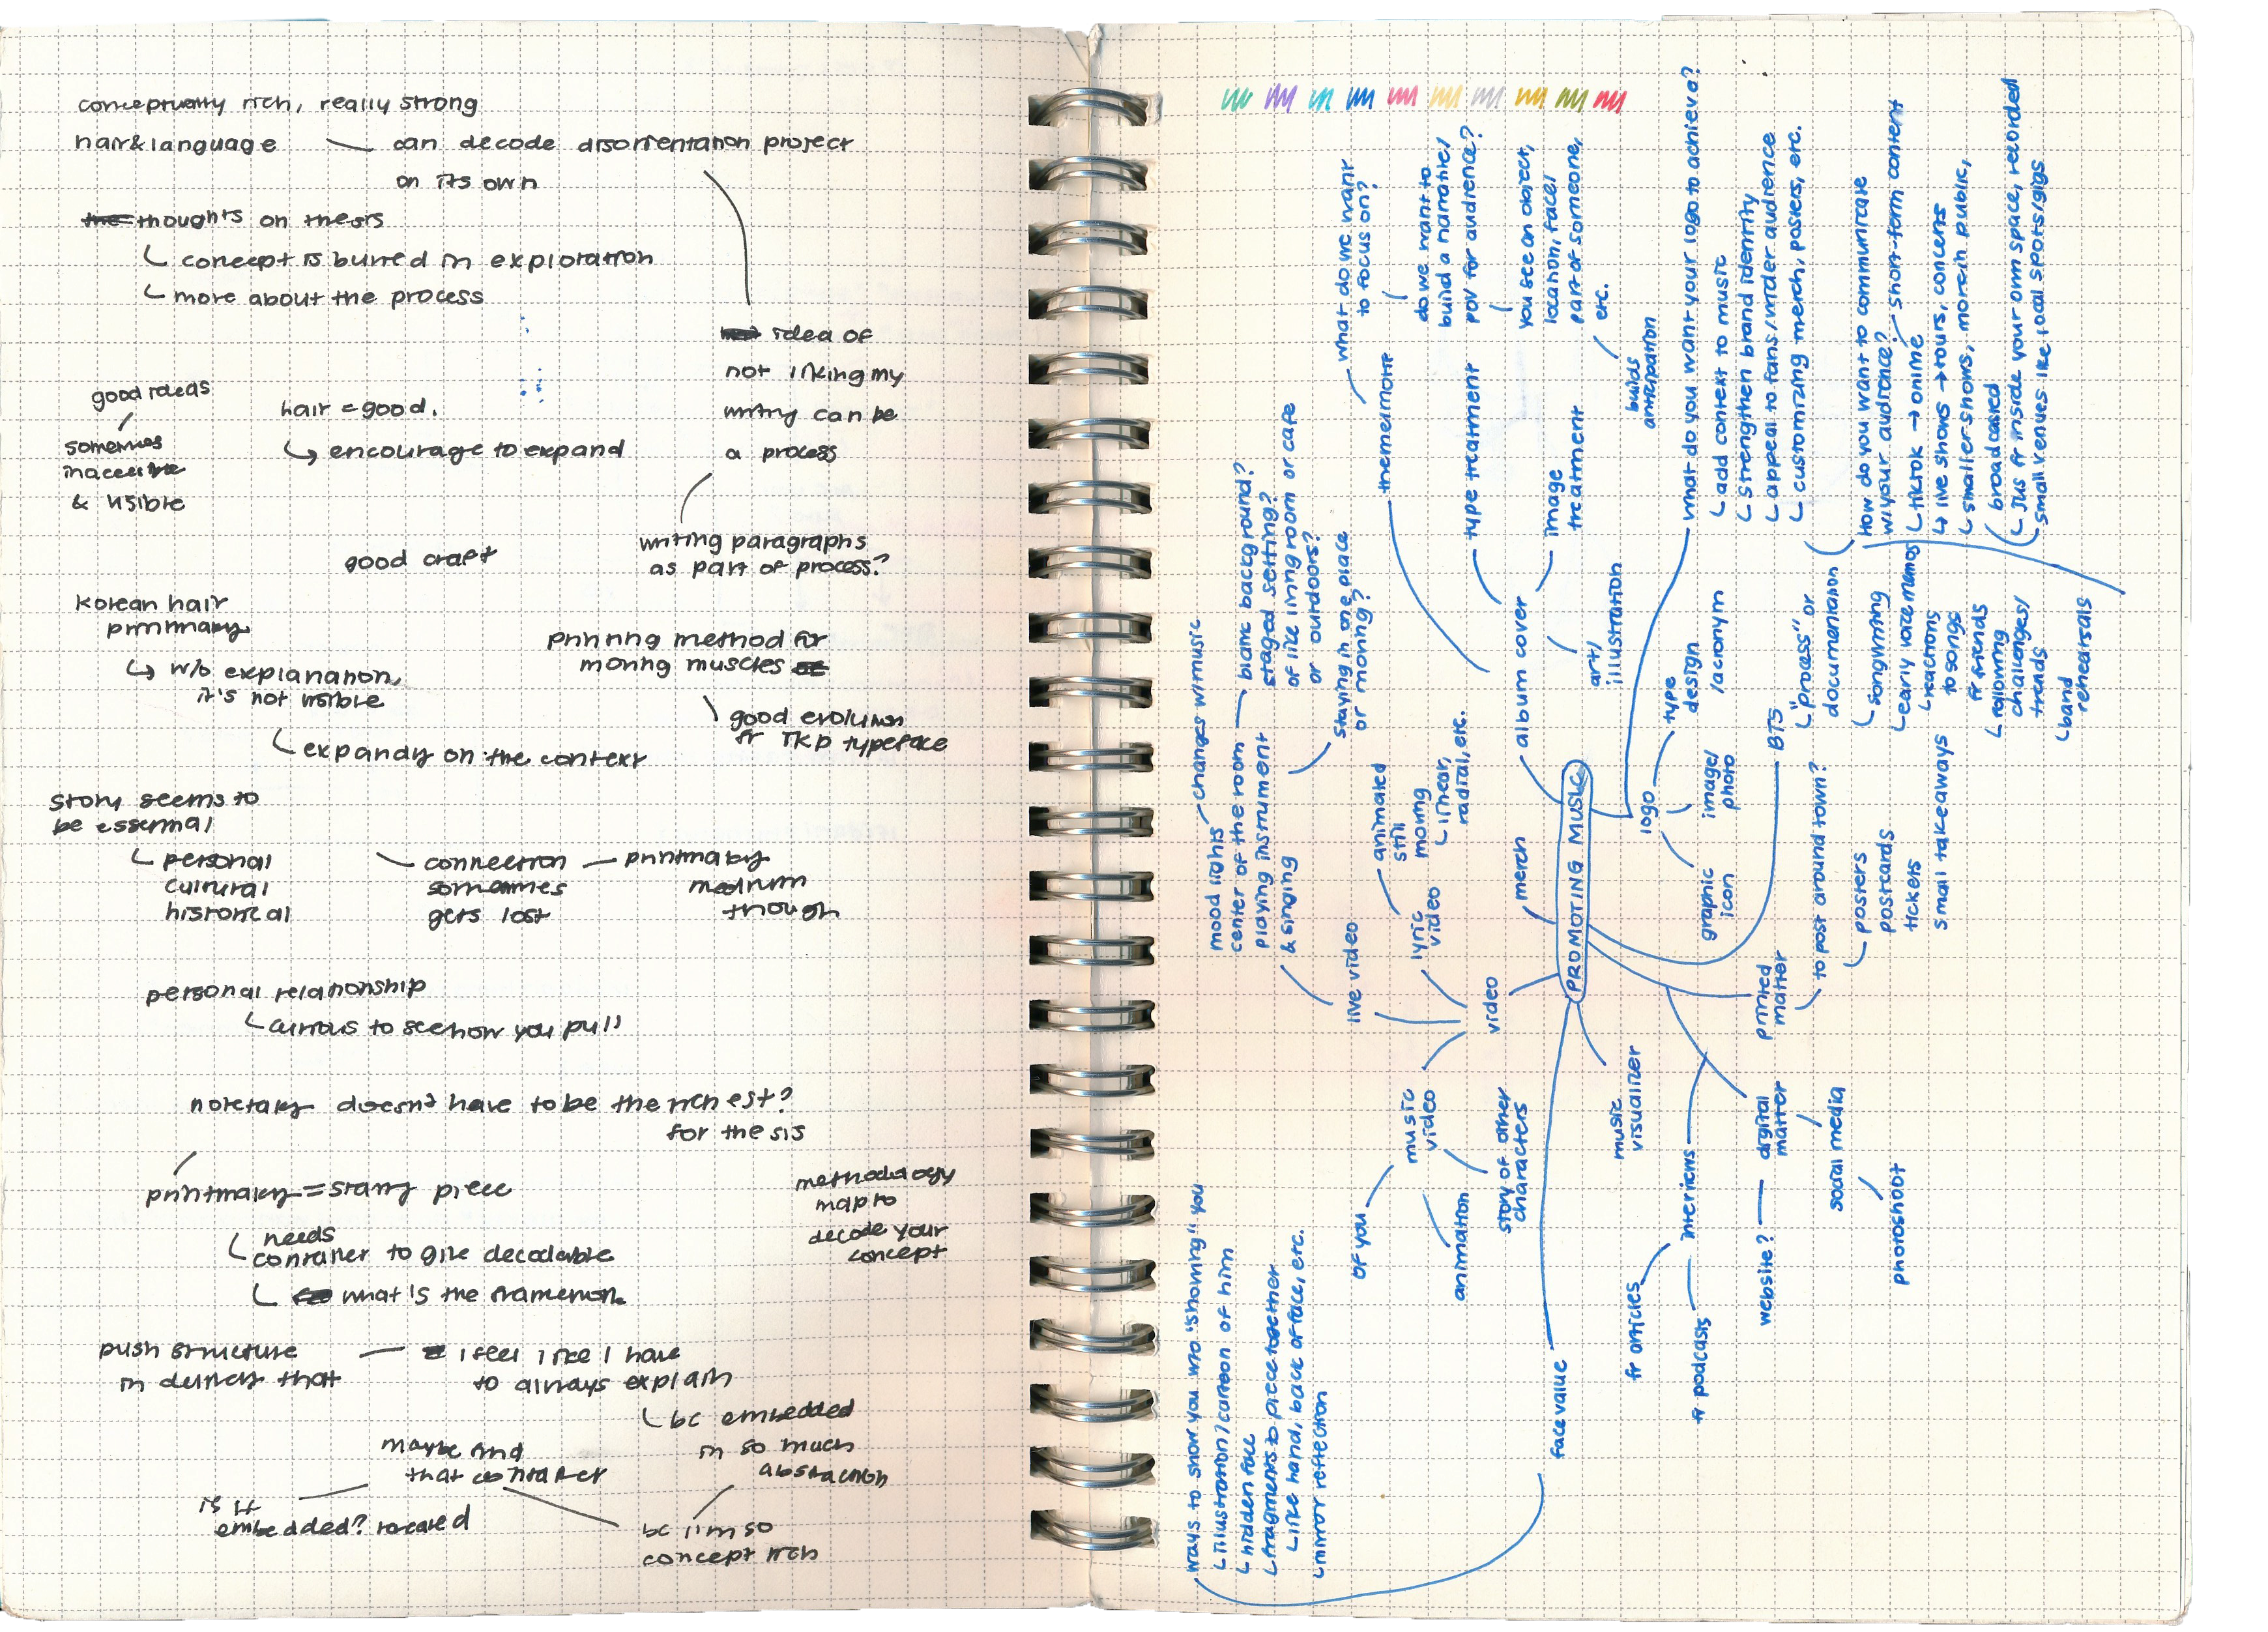 conceptually rich, really strong
hair & language — can decode disorientation project
on its own
thoughts on thesis
concept is buried in exploration
more about the process
idea of
not liking my
writing can be
a process
writing paragraphs
as part of process?
good ideas
sometimes
inaccessible
& visible
hair = good.
encourage to expand
good craft
Korean hair
printmaking
w/o explanation,
it's not visible
expanding on the context
printing method for
moving muscles
good evolution
fr TKD typeface
story seems to
be essential
personal
cultural
historical
connection
sometimes
gets lost
printmaking
medium
though
personal relationship
curious to see how you pull
notetaking doesn't have to be the richest?
for thesis
printmaking = starting piece
needs
container to give decodable
what's the framework
methodology
map to
decode your
concept
push structure
in delivering that
I feel like I have
to always explain
bc embedded
in so much
abstraction
maybe find
that container
is it
embedded? located
bc I'm so
concept rich
PROMOTING MUSIC
album cover
theme/motif
what do we want
to focus on?
do we want to
build a narrative/
pov for audience?
you see an object,
location, face/
part of someone,
etc.
builds
anticipation
type treatment
image
treatment
art/
illustration
logo
what do you want your logo to achieve?
add context to music
strengthen brand identity
appeal to fans/wider audience
customizing merch, posters, etc.
type
design
/acronym
image/
photo
graphic
icon
BTS
"process" or
documentation
songwriting
early voice memos
reactions
to songs
fr friends
following
challenges/
trends
band
rehearsals
How do you want to communicate
w/ your audience?
short-form content
tiktok → online
live shows → tours, concerts
smaller shows, more in public,
broadcasted
Jus fr inside your own space, recorded
small venues like local spots/gigs
printed
matter
to post around town?
posters
postcards
tickets
small takeaways
digital
matter
website?
social media
photoshoot
interviews
fr articles
fr podcasts
music
visualizer
merch
video
lyric
video
animated
still
moving
linear,
radial, etc.
live video
mood lights
changes w/ music
center of the room
playing instrument
& singing
blank background?
staged setting?
of like living room or cafe
or outdoors?
staying in one place
or moving?
music
video
of you
animation
story of other
characters
face value
ways to show you w/o "showing" you
illustration/cartoon of him
hidden face
fragments to piece together
like hand, back of face, etc.
mirror reflection